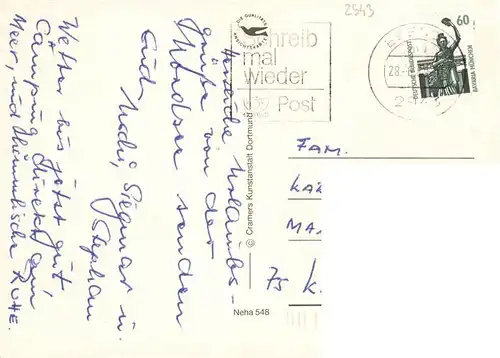 Herzliche Urlaubs-
grüße von der
Nordsee senden
Euch
Uschi, Siegmar u.
Stephan
Wetter bis jetzt gut
Camping direkt am
Meer, und himmlische
RUHE.
DIE QUALITÄTS
ANSICHTSKARTE
Schreib
mal
wieder
Post
2543
28.
60
DEUTSCHE BUNDESPOST
BAVARIA MÜNCHEN
FAM.
KA
MA
75 K.
© Cramers Kunstanstalt Dortmund
Neha 548